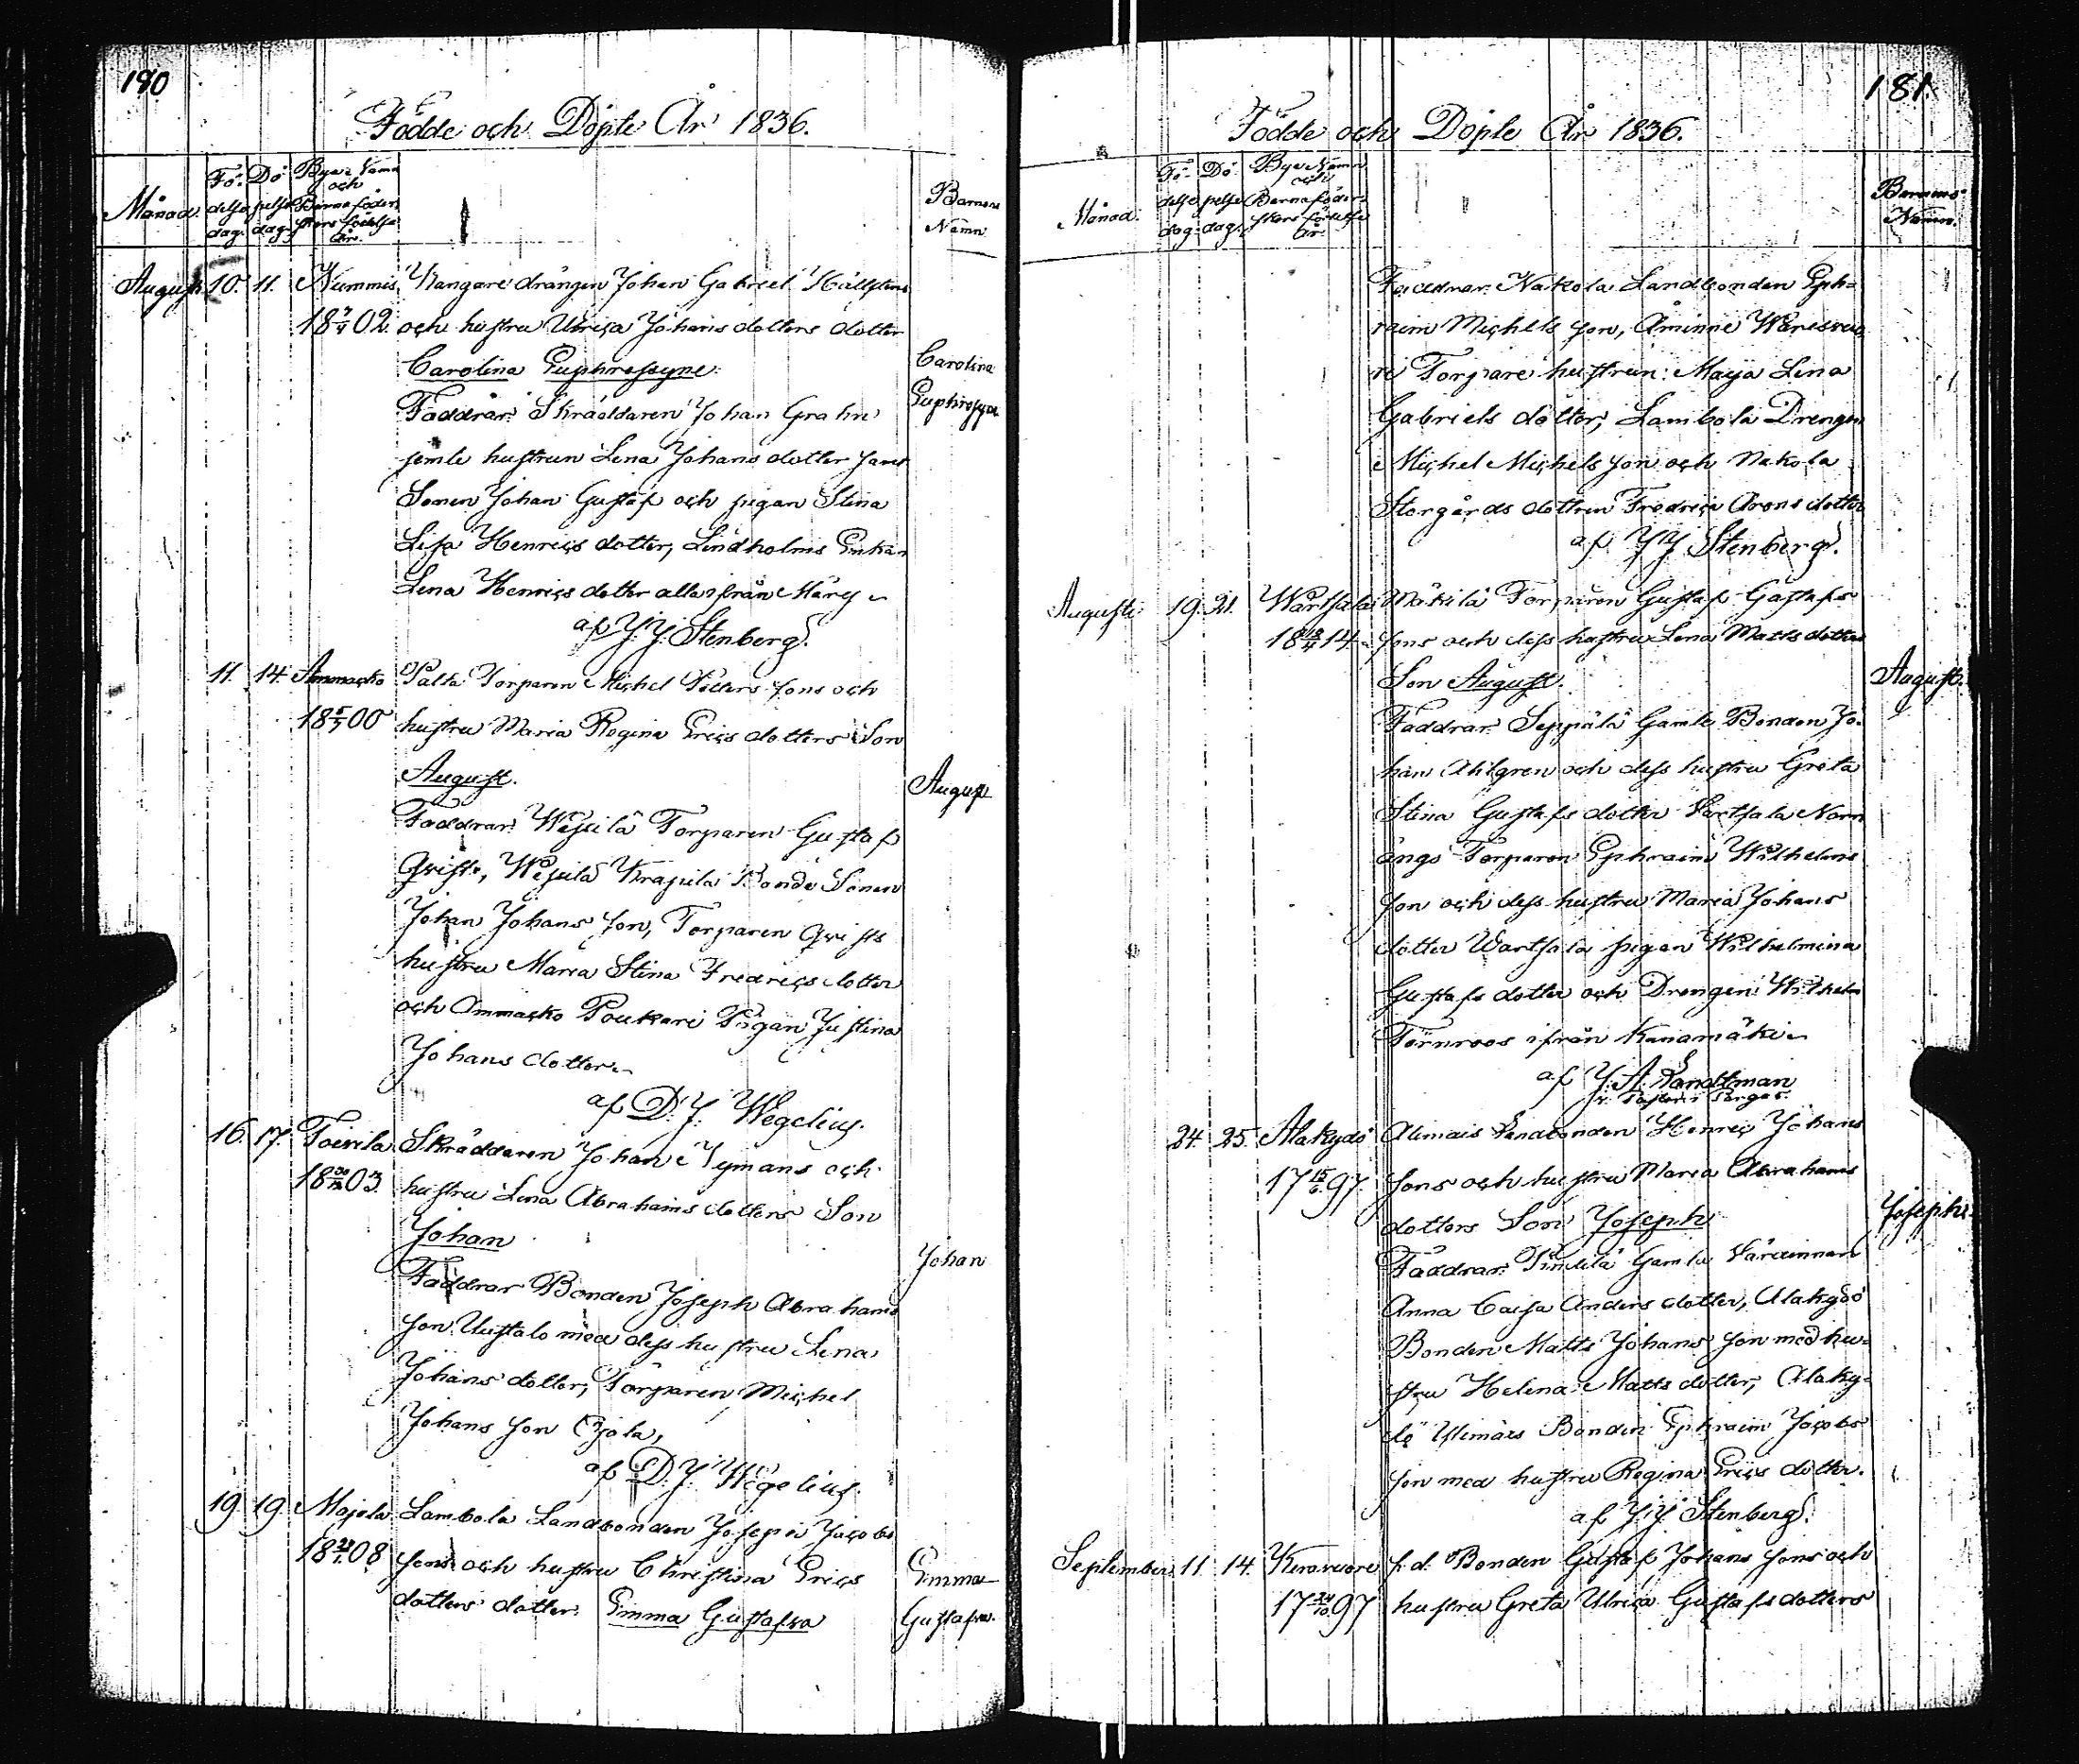 190
Födde och Döpte År 1836.
Månad. Fö-delse dag. Dö-pelse dag. Byar Namn och Barnaföder-skors födelse År. Barnens Namn
August 10. 11. Nummis Kangare drängen Johan Gabriel
18 02. och hustru Ulrica Johans dotters dotter
Carolina Euphrosyne. Carolina
Faddrar: Skräddaren Johan Grahn Euphrosyne
jemte hustrun Lena Johans dotter samt
Sonen Johan Gustaf och pigan Stina
Lisa Henrics dotter, Lindholms Enkan
Lena Henrics dotter alla ifrån
af J. J. Stenberg.
11. 14. Ammasko Palta Torparen Michel sons och
18 00 hustru Maria Regina Erics dotters Son
August. August
Faddrar: Torparen Gustaf
Qvist, Bonde Sonen
Johan Johans son, Torparen Qvists
hustru Maria Stina Fredrics dotter
och Ammasko Poukari Pigan Justina
Johans dotter
af D. J. Wegelius.
16. 17. Toivila Skräddaren Johan Nymans och
18 03. hustru Lena Abrahams dotters Son
Johan Johan
Faddrar Bonden Joseph Abrahams
son Uustalo med dess hustru Lena
Johans dotter, Torparen Michel
Johans son
af D. J. Wegelius.
19. 19. Majola Lambola Landbonden Joseph Jacobs
18 08 sons och hustru Christina Erics Emma
dotters dotter: Emma Gustafva Gustafva.
181.
Födde och Döpte År 1836.
Månad. Fö-delse dag. Dö-pelse dag. Byar Namn och Barnaföder-skors födelse År. Barnens Namn.
Faddrar: Nakola Landbonden Eph-
raim Michels son, Åminne
Torpare hustrun: Maja Lena
Gabriels dotter, Lambola Drengen
Michel Michels son och Nakola
Storgårds dottren Fredrica Arons dotter
af J. J. Stenberg.
Augusti 19. 21. Wartsala Mäkilä Torparen Gustaf Gustafs
18 14. sons och dess hustru Lena Matts dotters
Son August. August.
Faddrar: Seppälä Gamle Bonden Jo-
han Ahlgren och dess hustru Greta
Stina Gustafs dotter Wartsala Norr
ängs Torparen Ephraim Wilhelms
son och dess hustru Maria Johans
dotter Wartsala pigan Wilhelmina
Gustafs dotter och Drengen Wilhelm
Törnroos ifrån Kanamäki
af J. A. Sandtman
24. 25. Alakydö Landbonden Henric Johans
17 15/6 97. sons och hustru Maria Abrahams
dotters Son Joseph Joseph.
Faddrar: Gamla Värdinnan
Anna Caisa Anders dotter, Alakydö
Bonden Matts Johans son med hu-
stru Helena Matts dotter, Alaky-
dö Bonden Ephraim Jacobs
son med hustru Regina Erics dotter.
af J. J. Stenberg.
September 11 14. Kirovuore f. d. Bonden Gustaf Johans sons och
17 97 hustru Greta Ulrica Gustafs dotters